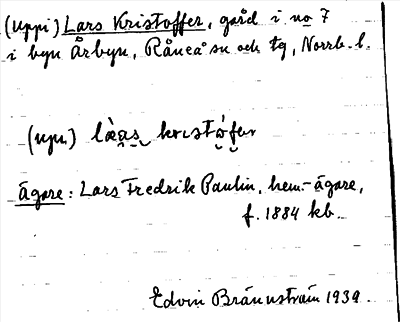 (uppi) Lars Kristoffer, gård i no 7
i byn Årbyn, Råneå sn och tg, Norrb. l.
(upi) làas kristófer
ägare: Lars Fredrik Paulin, hem.-ägare,
f. 1884 kb.
Edvin Brännström 1939.